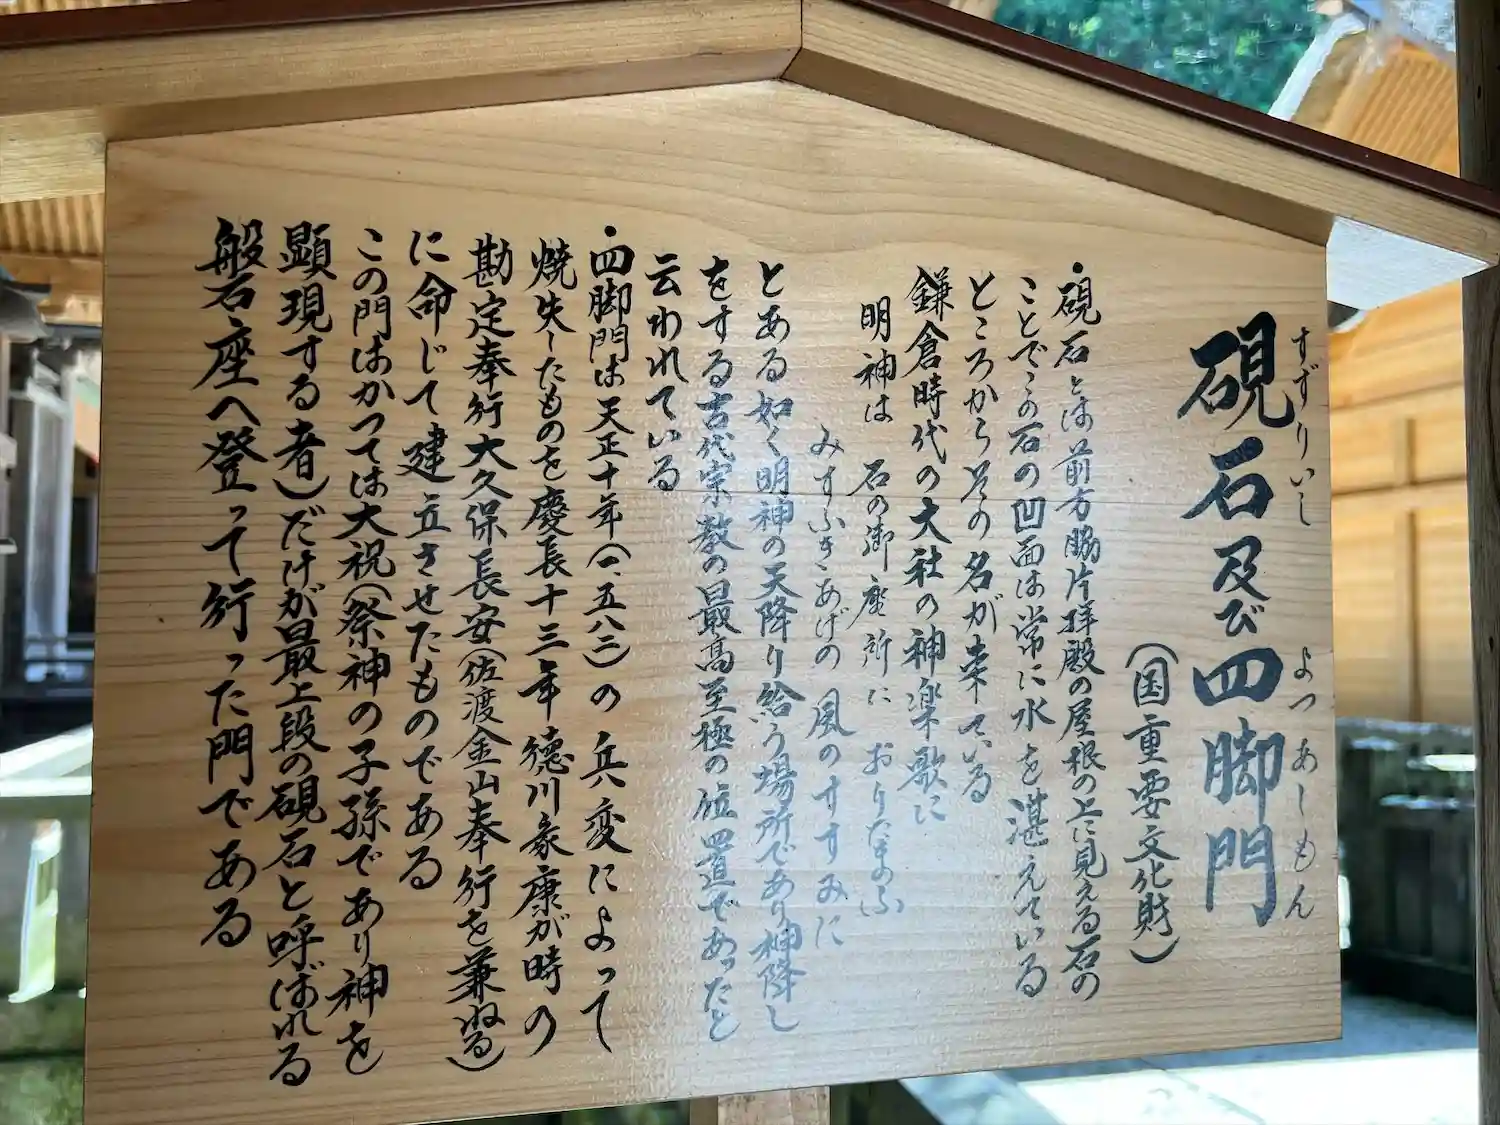 硯石及び四脚門
すずりいし よつあしもん
(国重要文化財)
・硯石とは前方脇片拝殿の屋根の上に見える石の
ことでこの石の凹面は常に水を湛えている
ところからその名が来ている
鎌倉時代の大社の神楽歌に
明神は 石の御座所に おりたまふ
みすふきあげの 風のすすみに
とある如く明神の天降り給う場所であり神降し
をする古代宗教の最高至極の位置であったと
云われている
・四脚門は天正十年(一、五八二)の兵変によって
焼失したものを慶長十三年徳川家康が時の
勘定奉行大久保長安(佐渡金山奉行を兼ねる)
に命じて建立させたものである
この門はかつては大祝(祭神の子孫であり神を
顕現する者)だけが最上段の硯石と呼ばれる
磐石座へ登って行った門である